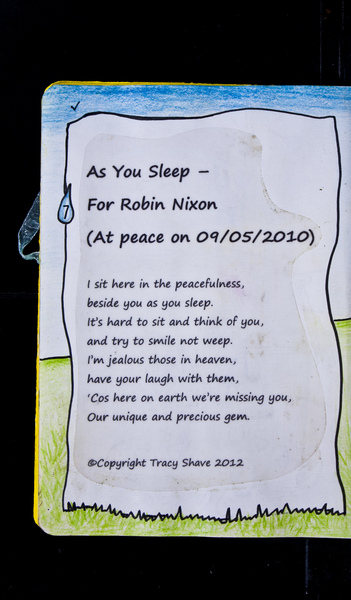 As You Sleep –
For Robin Nixon
(At peace on 09/05/2010)
7
I sit here in the peacefulness,
beside you as you sleep.
It's hard to sit and think of you,
and try to smile not weep.
I'm jealous those in heaven,
have your laugh with them,
'Cos here on earth we're missing you,
Our unique and precious gem.
©Copyright Tracy Shave 2012